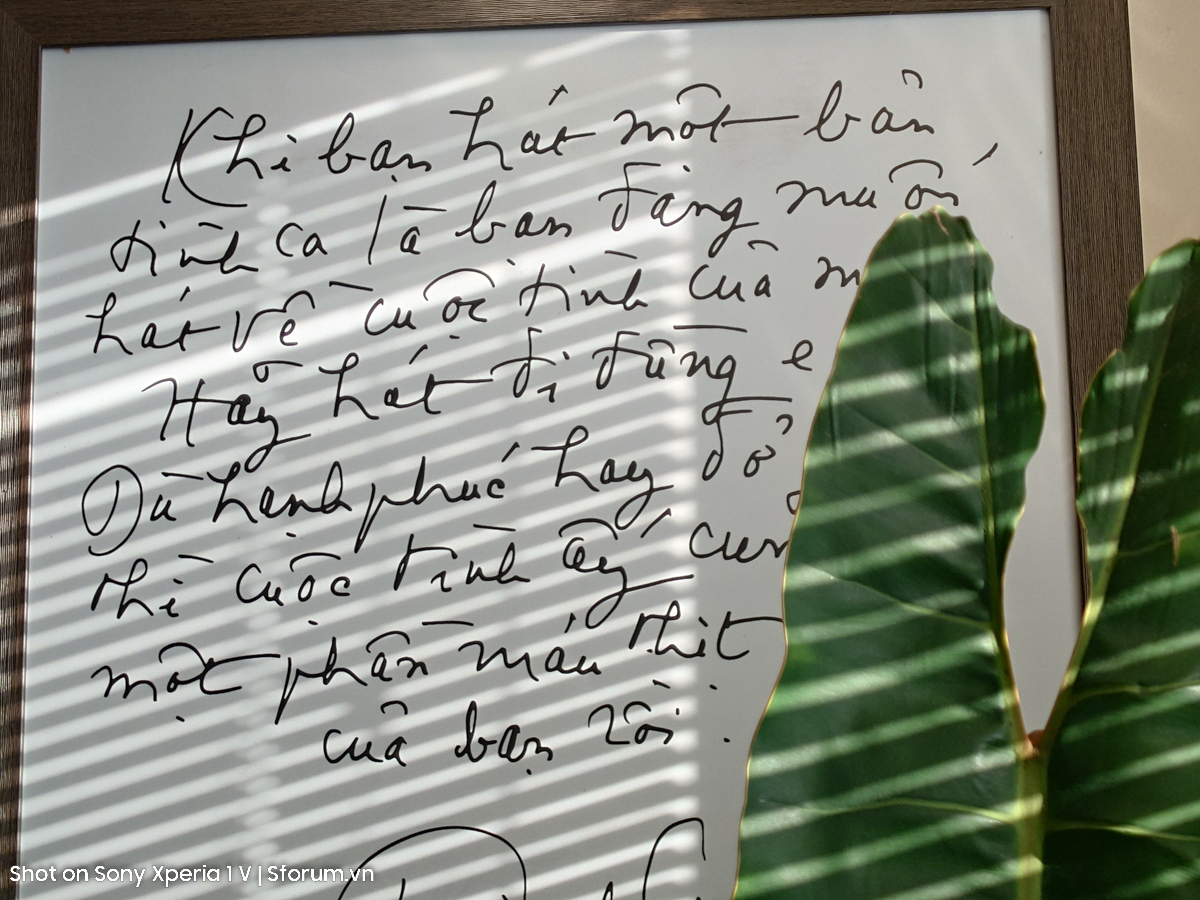 Khi bạn hát một bản
tình ca là bạn đang muốn
hát về cuộc tình của
Hãy hát đi đừng e
Dù hạnh phúc hay đổ
thì cuộc tình ấy
một phần máu thịt
của bạn rồi.
Shot on Sony Xperia 1 V | Sforum.vn